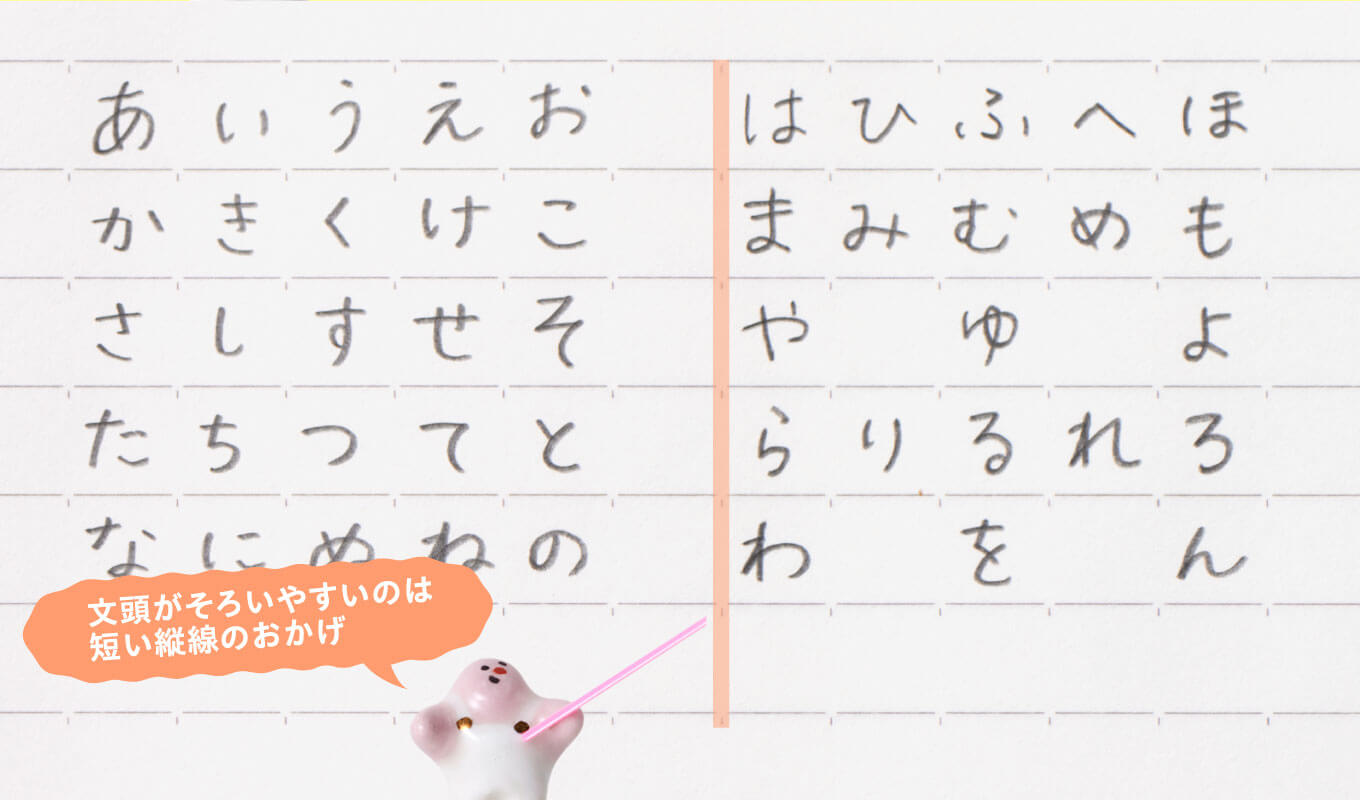 あいうえお
かきくけこ
さしすせそ
たちつてと
なにぬねの
はひふへほ
まみむめも
や ゆ よ
らりるれろ
わ を ん
文頭がそろいやすいのは
短い縦線のおかげ